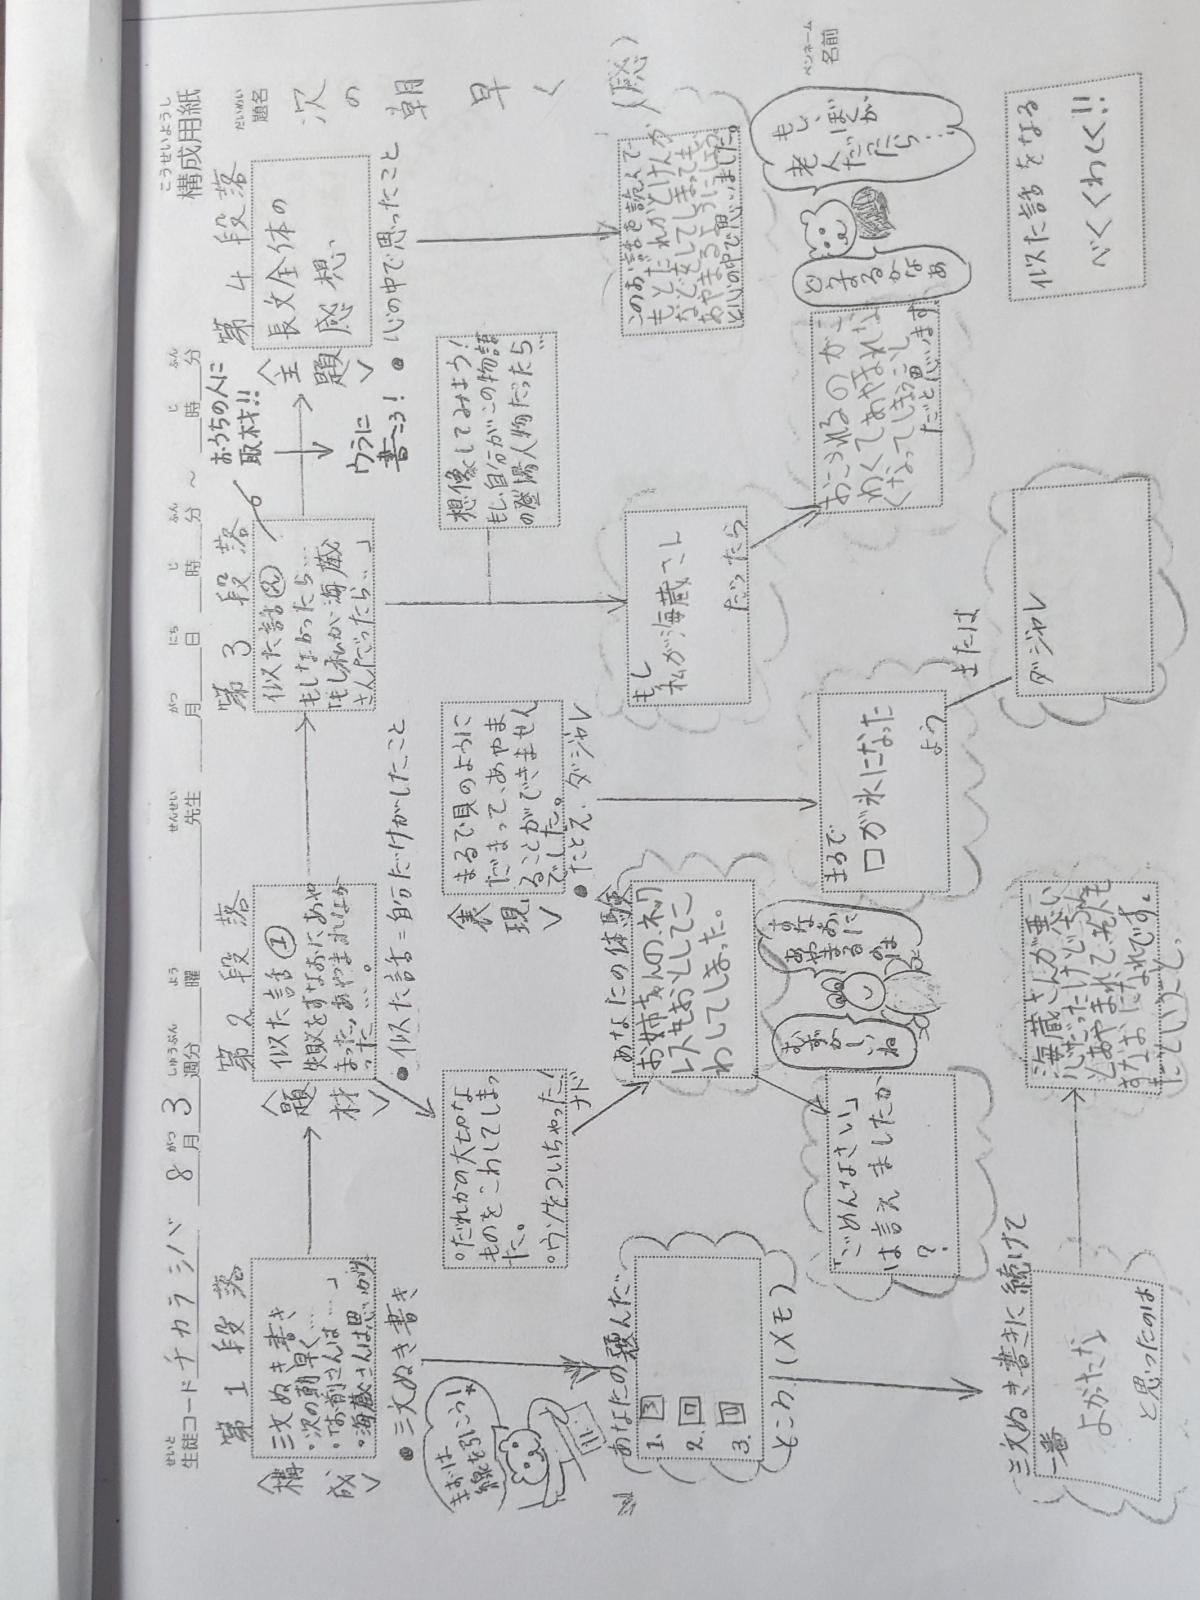 構成用紙
こうせいようし
生徒コード チカラシノバ 8月3週分 曜 先生 月 日 時 分 ～ 時 分
題名 次の朝早く (感)
ペンネーム
名前
第1段落
〈構成〉
三文ぬき書き
・次の朝早く…
・「お前さんは…」
・海蔵さんは思いがけ
●三文ぬき書き
まずは
線を引こう!
あなたの読んだ
1. 3
2.
3.
ところ!(メモ)
三文ぬき書きに続けて
一番
よかったな
と思ったのは
海蔵さんが重い
心だったけどちゃん
とあやまれて老人も
すなおになれです。
たということ、
第2段落
〈題材〉
似た話①
失敗をすなおにあや
まった、あやまれなか
った…。
●似た話=自分だけがしたこと
○だれかの大切な
ものをこわしてしまっ
た。
○ウソをついちゃった!
ナド
あなたの体験
お姉ちゃんのネック
レスをおとしてこ
わしてしまった。
すなおに
あやまる
のは
むずかしいね
「ごめんなさい」
は言えましたか
?
〈表現〉
まるで貝のように
だまって、あやま
ることができません
でした。
●たとえ・ダジャレ
まるで
口が氷になった
よう
または
ダジャレ
第3段落
似た話②
もしなかったら…
「もし私が海蔵
さんだったら…」
おうちの人に
取材!!
ウラに
書こう!
想像してみよう!
もし、自分がこの物語
の登場人物だったら…
もし
私が海蔵さん
だったら
おこられるのがこ
わくてあやまれな
くなってしまうこと
だと思います。
第4段落
〈主題〉
長文全体の
感想
●心の中で思ったこと
このお話を読んで
もっとだれかとけんか
などをしてしまっても、
あやまるようにしよう
と心の中で思いました。
もしぼくが
老人だったら…
どうするかなぁ
似た話をなる
べくくわしく!!